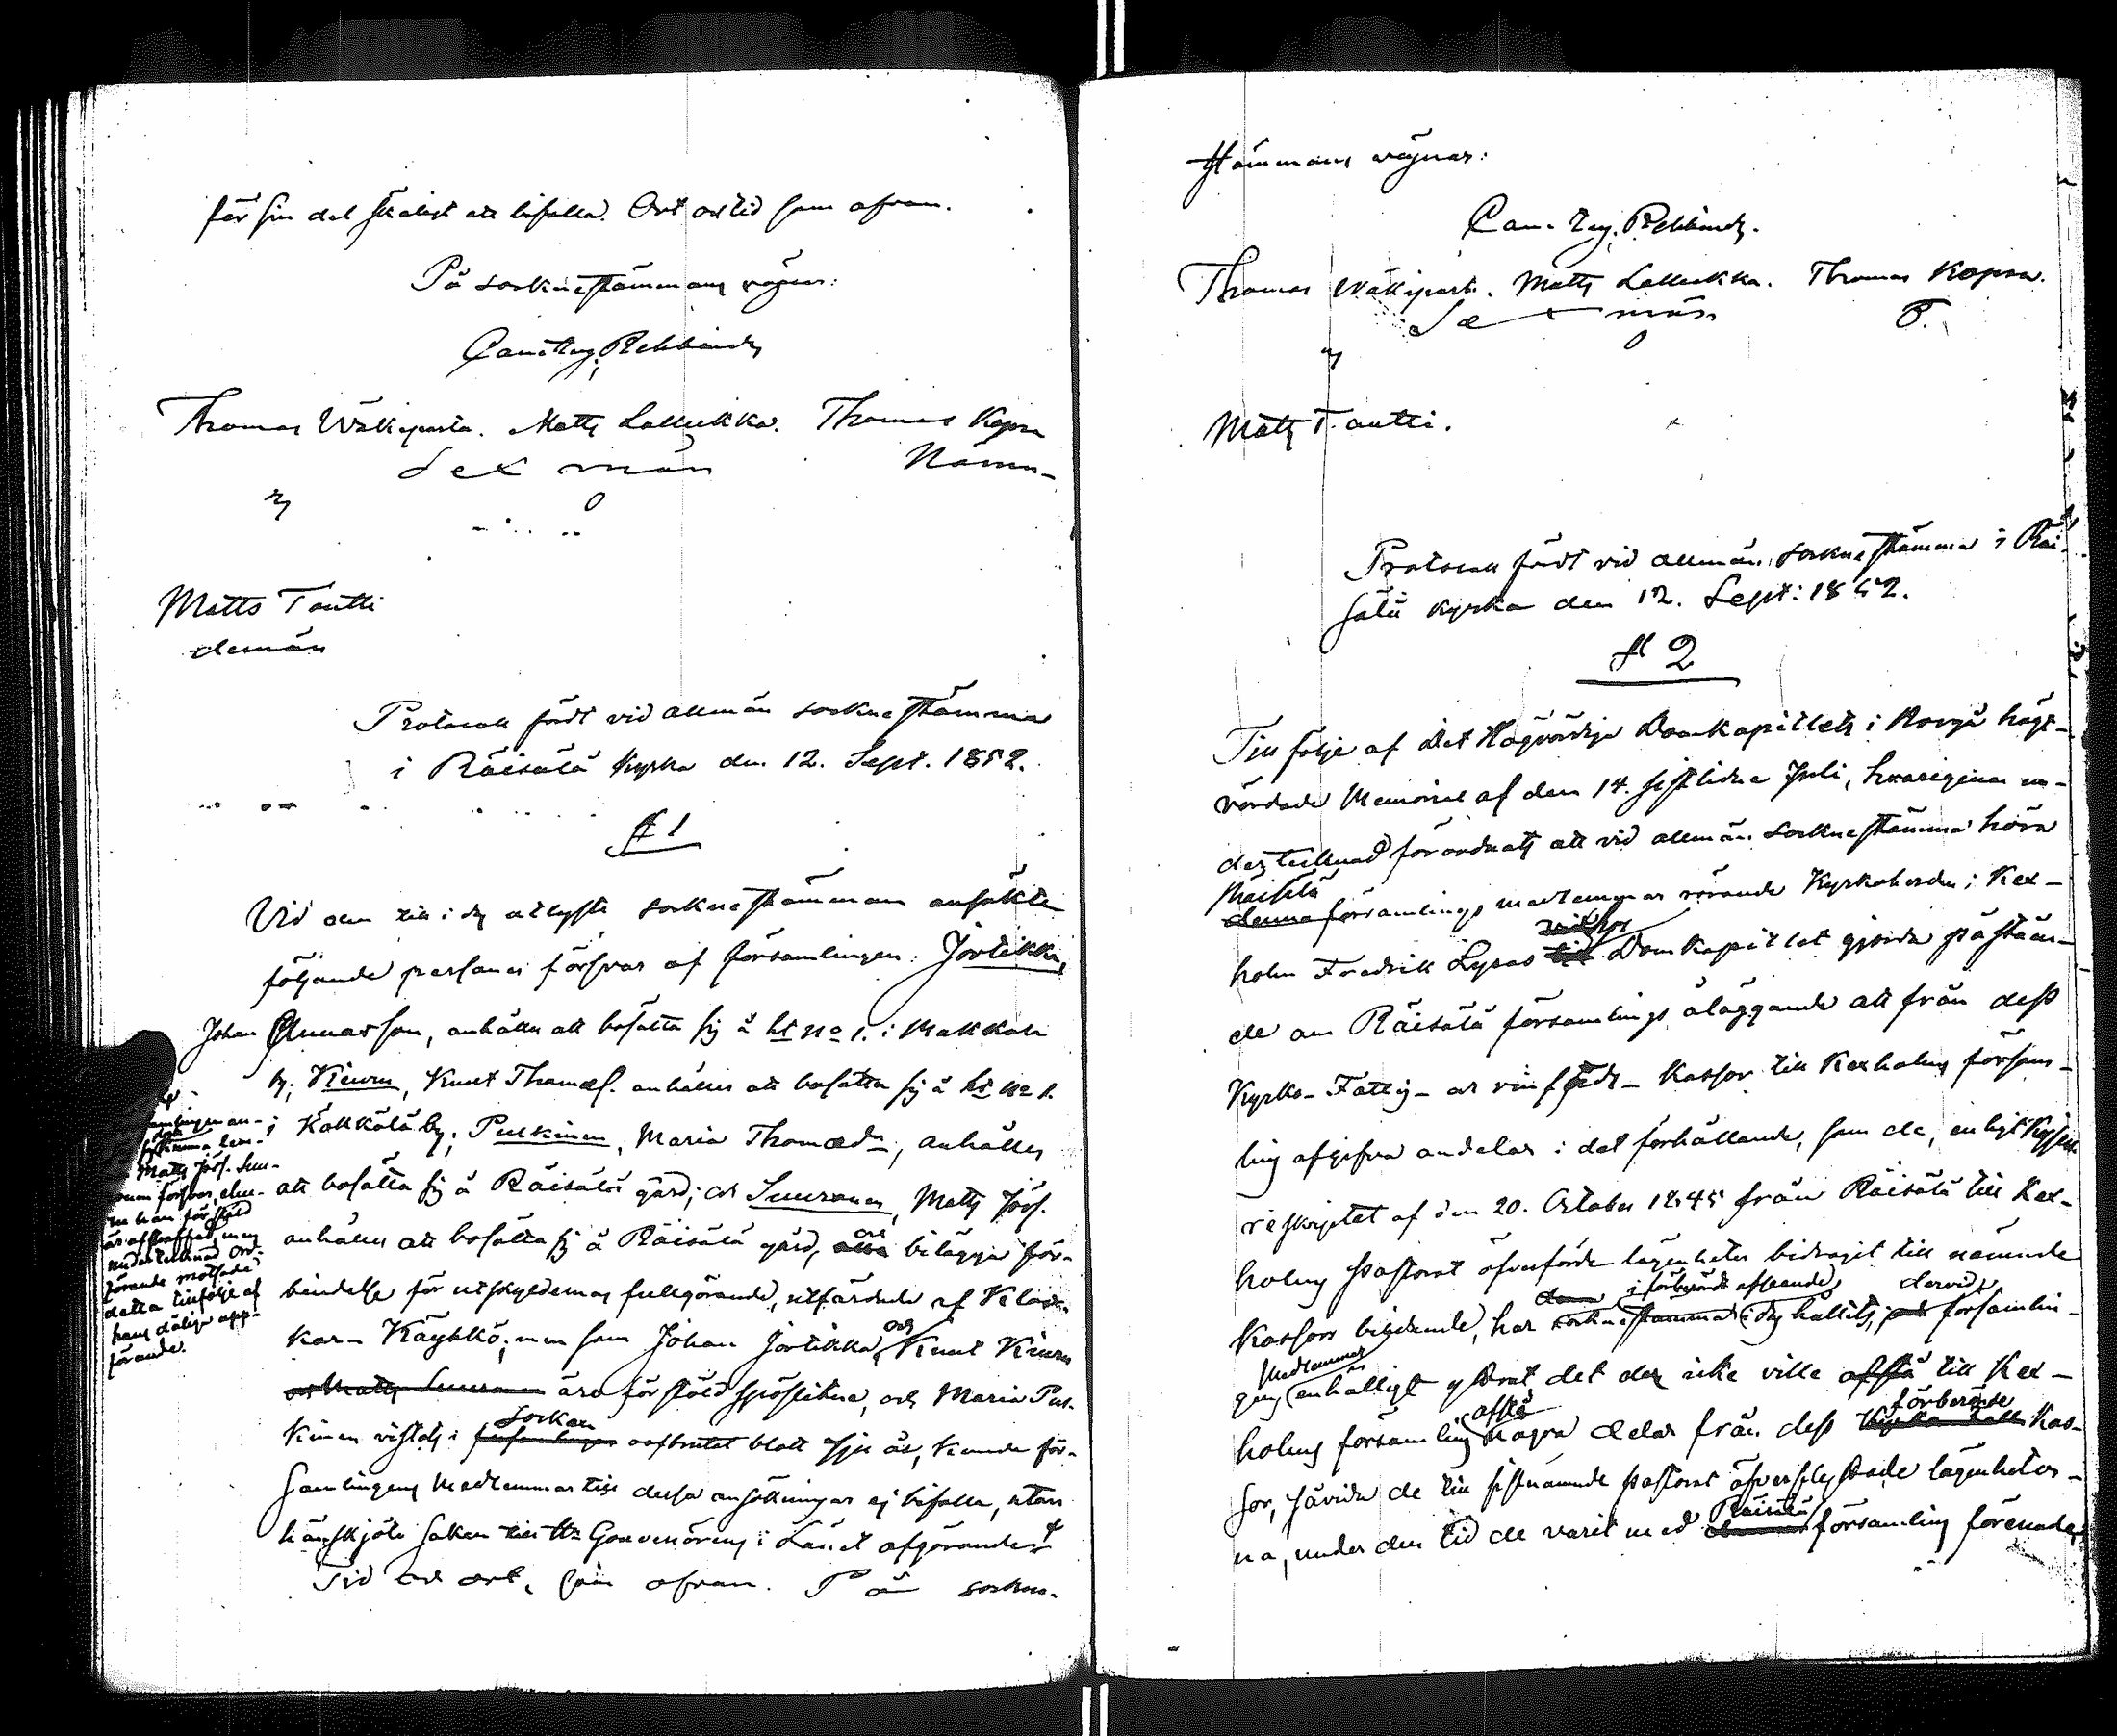 för sin del skäligt att bifalla. Ort och tid som ofvan.
På sockne stämmans vägnar:
Rehbinder
Thomas Wäkiparta. Matts Lallukka. Thomas Kopra
Sexmän Nämn-
Matts Tautti
demän
Protocoll fördt vid allmän sockne stämma
i Räisälä Kyrka den 12. Sept. 1852.
§ 1
Vid den till i dag utlyste sockne stämman ansökte
följande personer försvar af församlingen: Jortikka,
Johan Gunnarsson, anhåller att bosätta sig å ht No 1. i Makkola
by; Kiuru, Knut Thomæs. anhåller att bosätta sig å ht No 1.
i Kökkölä by; Pulkinen, Maria Thomædr, anhåller
att bosätta sig å Räisälä gård; och Suuronen, Matts Jöss.
anhåller att bosätta sig å Räisälä gård, och bilägga för-
bindelse för utskyldernas fullgörande, utfärdade af Klåc-
karn Käyhkö; men som Johan Jortikka och Knut Kiuru
och Matts Suuronen äro för stöld spöslitne, och Maria Pul-
kinen vistats i församlingen socken oafbrutet blott sju år, kunde för-
samlingens Medlemmar tills dessa ansökningar ej bifalla, utan
hänskjöto saken till Hr Gouvenörens i Länet afgörande.
Tid och ort, som ofvan. På sockne-
samlingen an-
Matts Jöss. Suu-
ronen försvar, ehu-
ru han för stöld
är afstraffad, men
undertecknad ord-
förande motsade
detta tillfölje af
hans dåliga upp-
förande.
stämmans vägnar:
Rehbinder.
Thomas Wäkiparta. Matts Lallukka. Thomas Kopra.
Sexmän
Matts Tautti.
Protocoll fördt vid allmän sockne stämma i Räi-
sälä kyrka den 12. Sept: 1852.
§ 2
Till följe af Det Högvördiga Domkapitlets i Borgå högt-
vördade Memorial af den 14. sistlidne Juli, hvarigenom un-
dertecknad förordnats att vid allmän sockne stämma höra
Räisälä
denna församlings medlemmar rörande Kyrkoherden i Kex-
holm Fredrik Lyras till Domkapitlet gjorda påståen-
de om Räisälä församlings åläggande att från dess
Kyrko- Fattig- och vinfjerds- Kassor till Kexholms försam-
ling afgifva andelar i det förhållande, som de, enligt Kejserl.
reskriptet af den 20. October 1845 från Räisälä till Kex-
holms Pastorat öfverförde lägenheter bidragit till nämnde
i förberörde afseende dervid
Kassors bildande, har sockne stämma i dag hållits, och församlin-
Medlemmar
gens enhälligt yttrat det de icke ville afstå till Kex-
afstå förberörde
holms församling några delar från dess Kas-
sor, såvida de till sistnämnde Pastorat öfverflyttade lägenheter-
Räisälä
na, under den tid de varit med denna församling förenade,